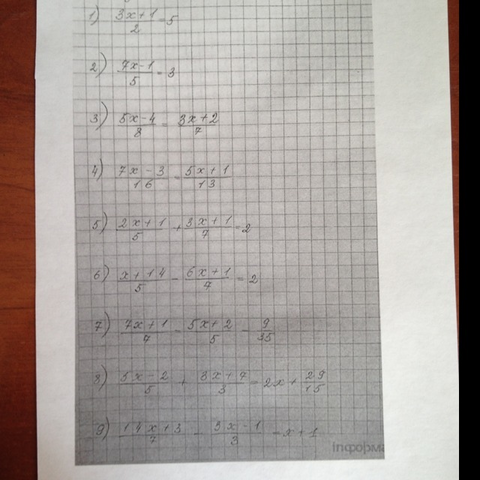 1) (3x+1)/2 = 5
2) (7x-1)/5 = 3
3) (5x-4)/8 = (3x+2)/7
4) (7x-3)/16 = (5x+1)/13
5) (2x+1)/5 + (3x+1)/7 = 2
6) (x+14)/5 - (6x+1)/7 = 2
7) (7x+1)/7 - (5x+2)/5 = 9/35
8) (5x-2)/5 + (8x+7)/3 = 2x + 29/15
9) (14x+3)/7 - (3x-1)/3 = x+1
інформа